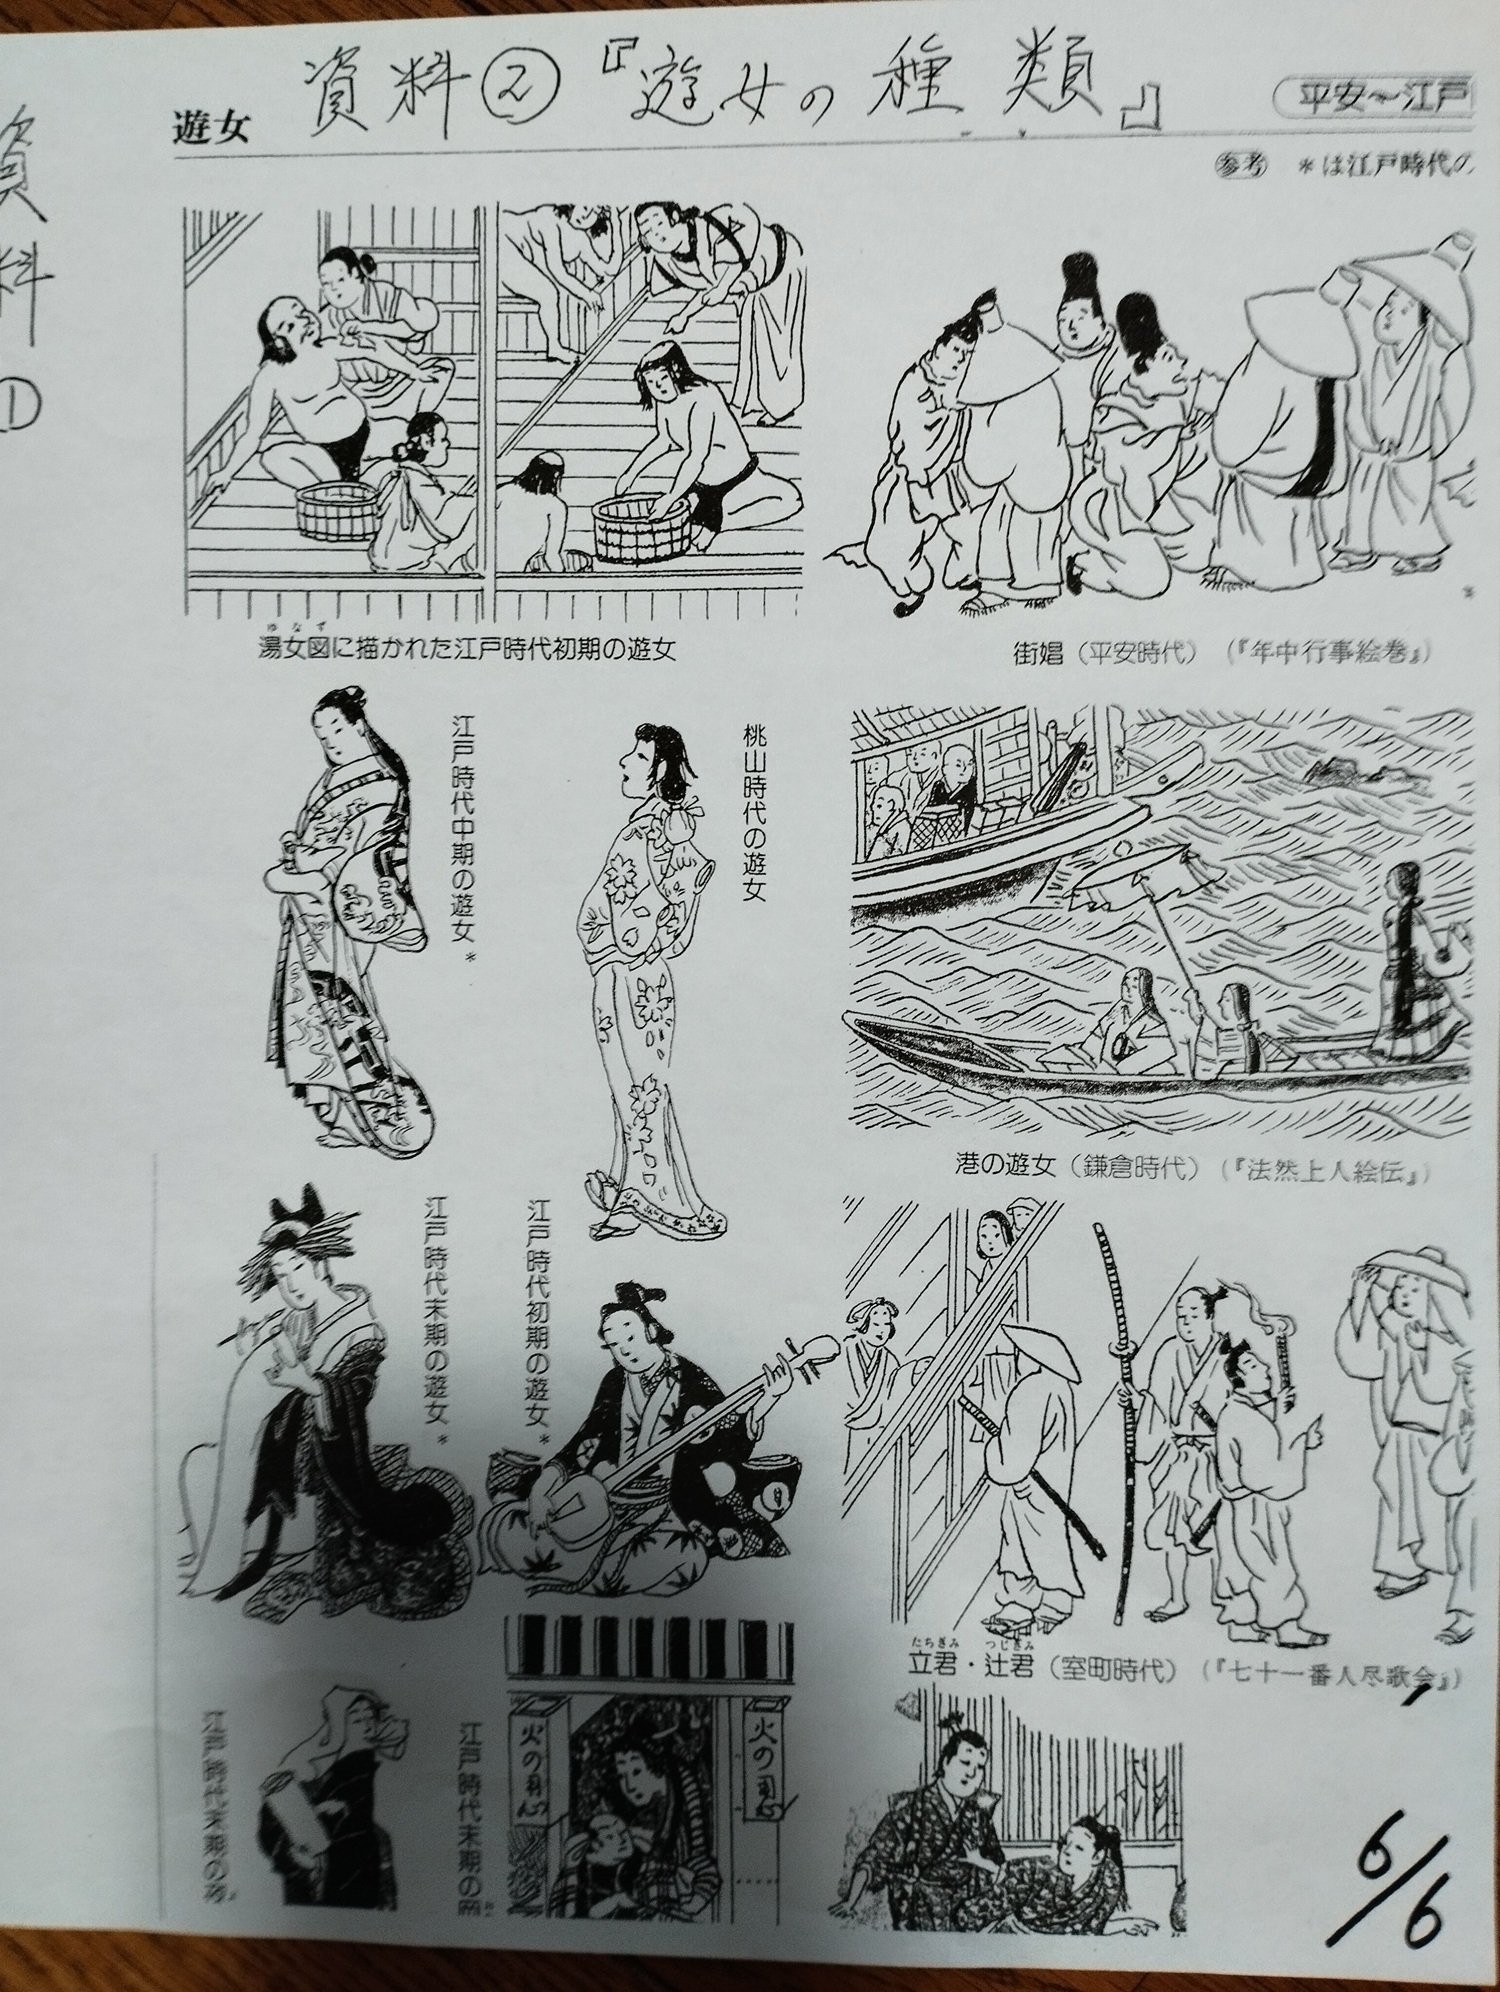 資料②『遊女の種類』
遊女
平安〜江戸
参考 *は江戸時代の
資料①
ゆなず
湯女図に描かれた江戸時代初期の遊女
街娼（平安時代）（『年中行事絵巻』）
桃山時代の遊女
江戸時代中期の遊女*
港の遊女（鎌倉時代）（『法然上人絵伝』）
江戸時代初期の遊女*
江戸時代末期の遊女*
たちぎみ つじぎみ
立君・辻君（室町時代）（『七十一番人尽歌合』）
火の用心
火の用心
江戸時代末期の
江戸時代末期の
6/6